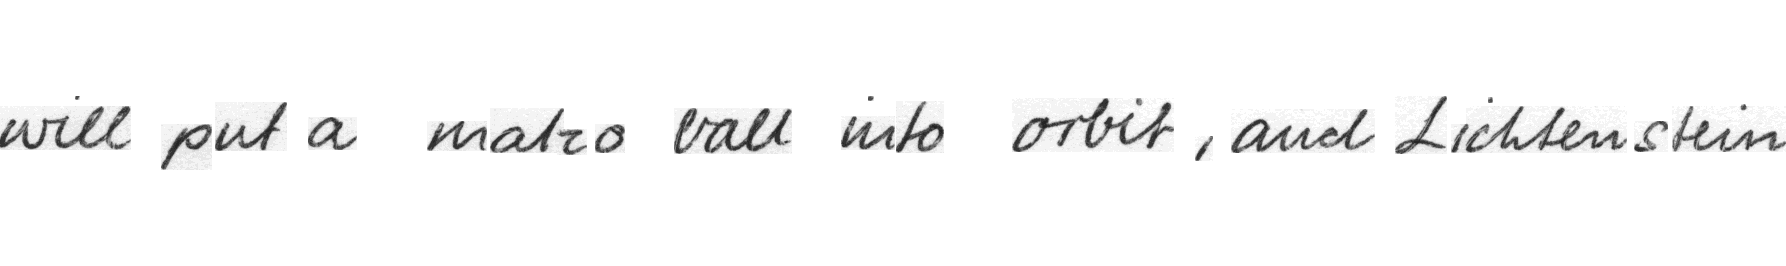 will put a matzo ball into orbit , and Lichtenstein